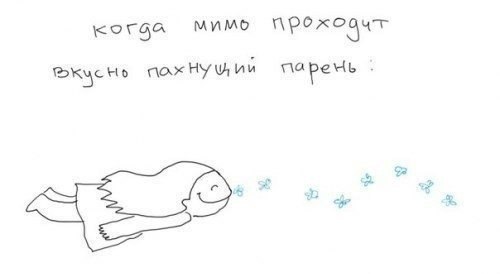 когда мимо проходит
вкусно пахнущий парень: